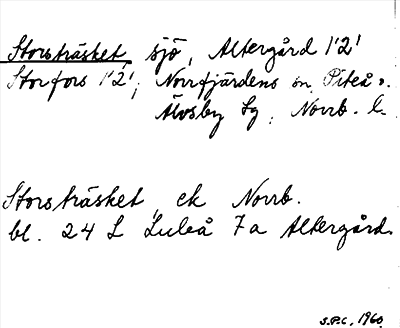 Storsträsket sjö, Altergård 1'2'
Storfors 1'2', Norrfjärdens sn, Piteå o.
Älvsby tg, Norrb. l.
Storsträsket, ek Norrb.
bl. 24 L Luleå 7a Altergård.
S.P.C. 1960